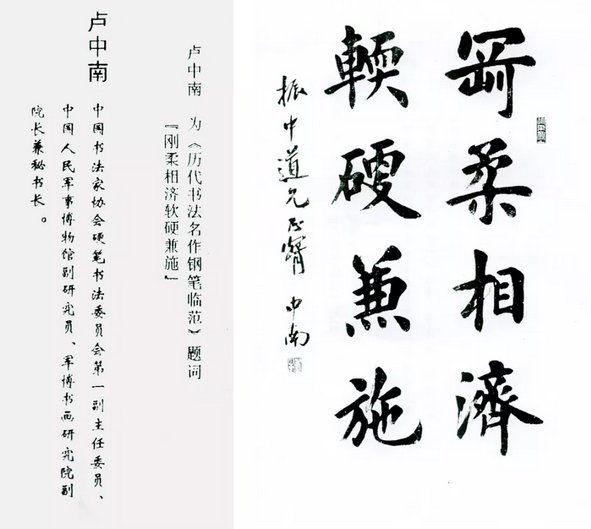 剛柔相濟
輭硬兼施
振中道兄正 中南
卢中南 为《历代书法名作钢笔临范》题词
『刚柔相济软硬兼施』
卢中南
中国书法家协会硬笔书法委员会第一副主任委员、
中国人民军事博物馆副研究员、军博书画研究院副
院长兼秘书长。